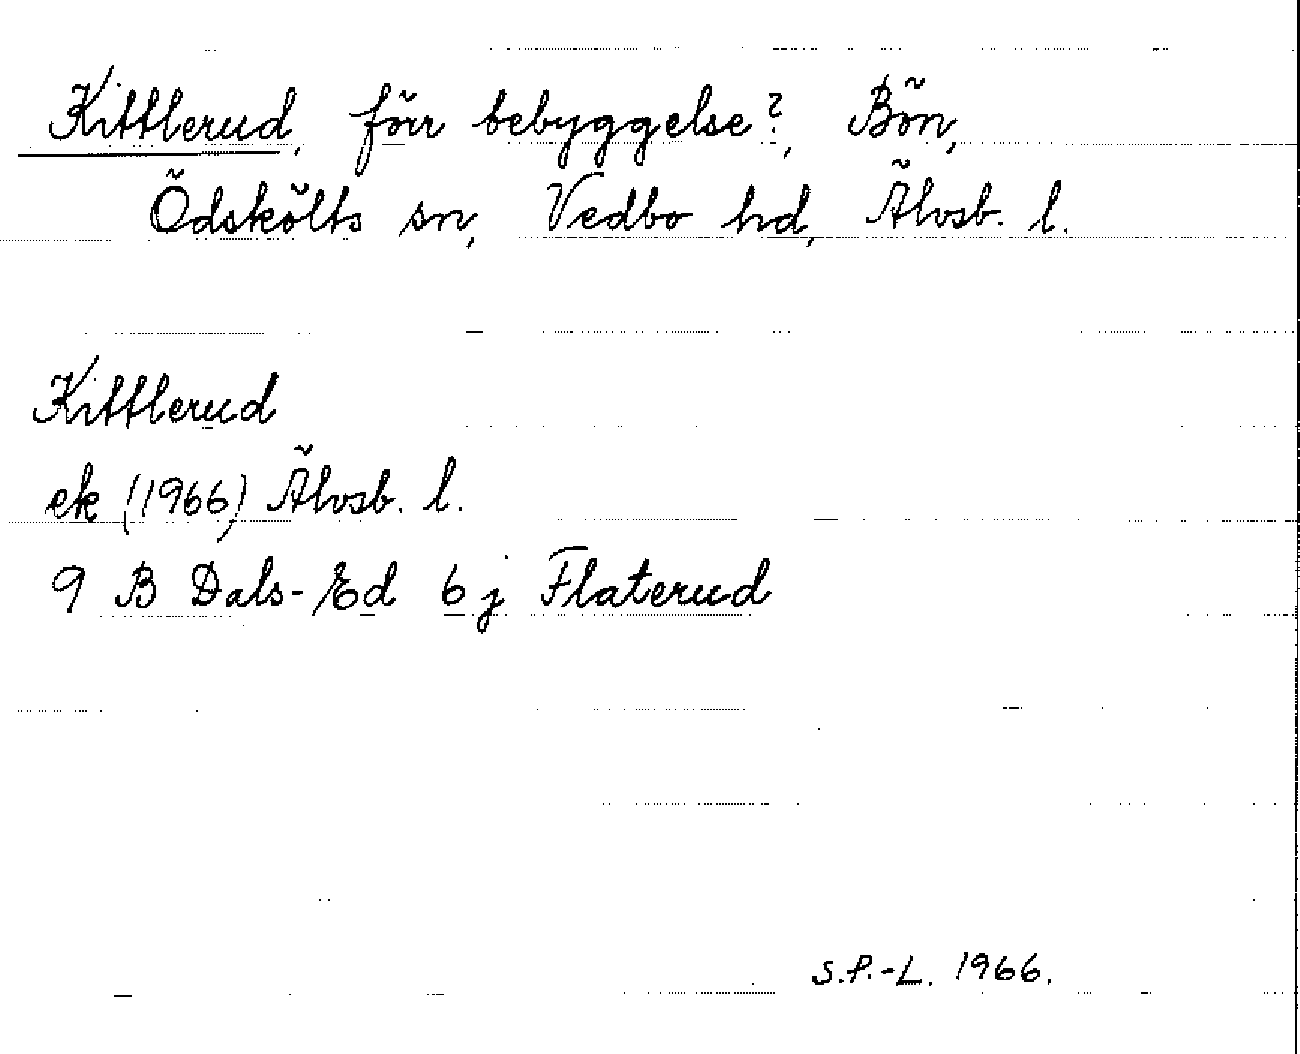 Kittlerud, förr bebyggelse?, Bön,
Ödskölts sn, Vedbo hd, Älvsb. l.
Kittlerud
ek (1966) Älvsb. l.
9 B Dals-Ed 6 j Flaterud
S.P.-L. 1966.